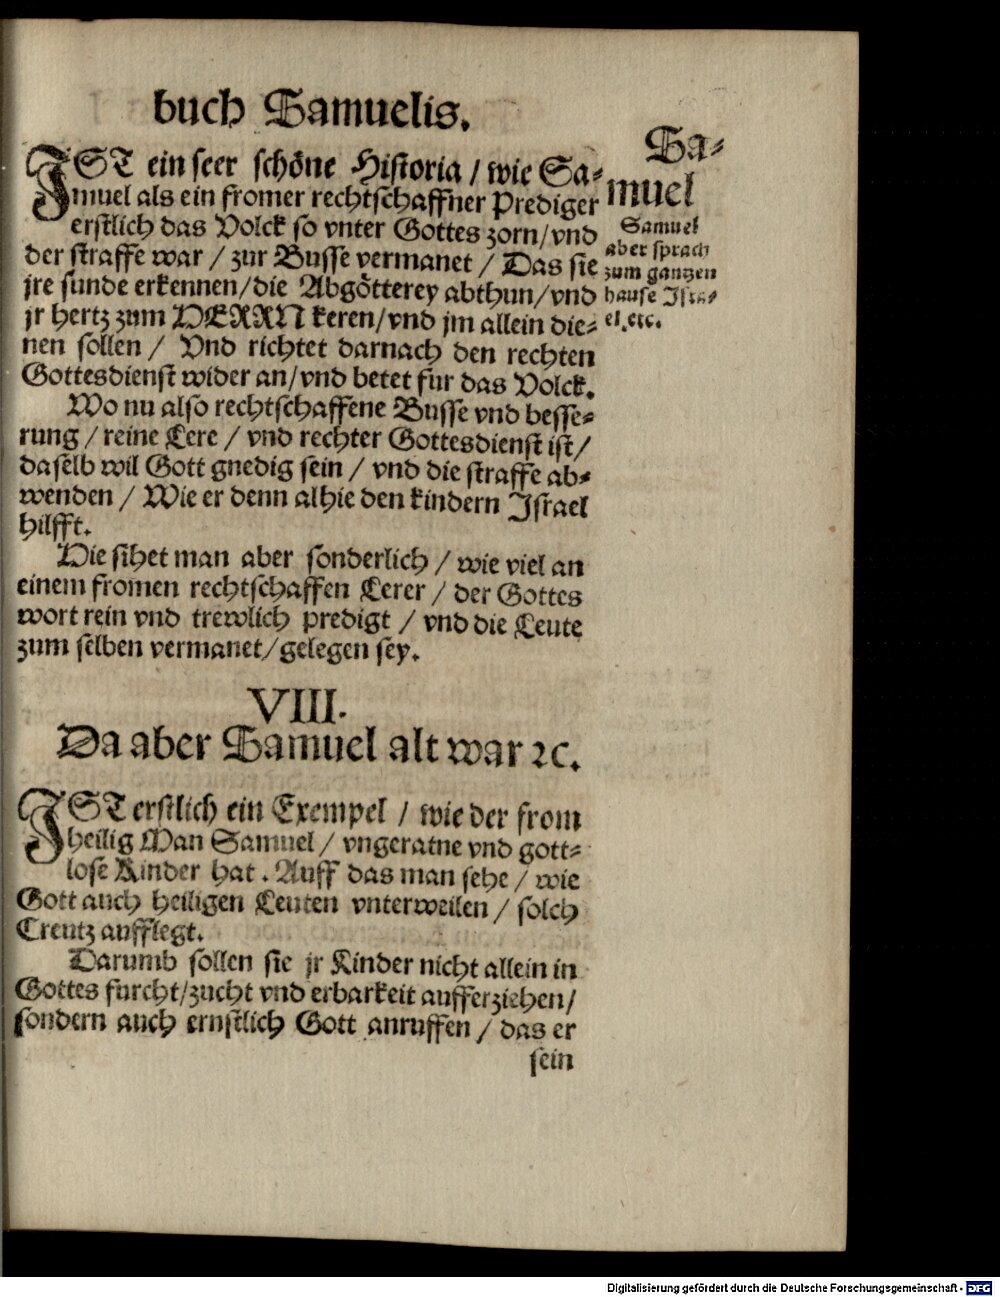 buch Samuelis.
IST ein seer schöne Historia / wie Sa-
muel als ein fromer rechtschaffner Prediger
erstlich das Volck so vnter Gottes zorn/vnd
der straffe war / zur Busse vermanet / Das sie
jre sunde erkennen/die Abgötterey abthun/vnd
jr hertz zum HERRN keren/vnd jm allein die-
nen sollen / Vnd richtet darnach den rechten
Gottesdienst wider an/vnd betet fur das Volck.
Wo nu also rechtschaffene Busse vnd besse-
rung / reine Lere / vnd rechter Gottesdienst ist/
daselb wil Gott gnedig sein / vnd die straffe ab-
wenden / Wie er denn alhie den kindern Israel
hilfft.
Hie sihet man aber sonderlich / wie viel an
einem fromen rechtschaffen Lerer / der Gottes
wort rein vnd trewlich predigt / vnd die Leute
zum selben vermanet/gelegen sey.
Sa-
muel
Samuel
aber sprach
zum gantzen
hause Isra-
el.etc.
VIII.
Da aber Samuel alt war ꝛc.
IST erstlich ein Exempel / wie der from
heilig Man Samuel / vngeratne vnd gott-
lose Kinder hat . Auff das man sehe / wie
Gott auch heiligen Leuten vnterweilen / solch
Creutz aufflegt.
Darumb sollen sie jr Kinder nicht allein in
Gottes furcht/zucht vnd erbarkeit aufferziehen/
sondern auch ernstlich Gott anruffen / das er
sein
Digitalisierung gefördert durch die Deutsche Forschungsgemeinschaft - DFG